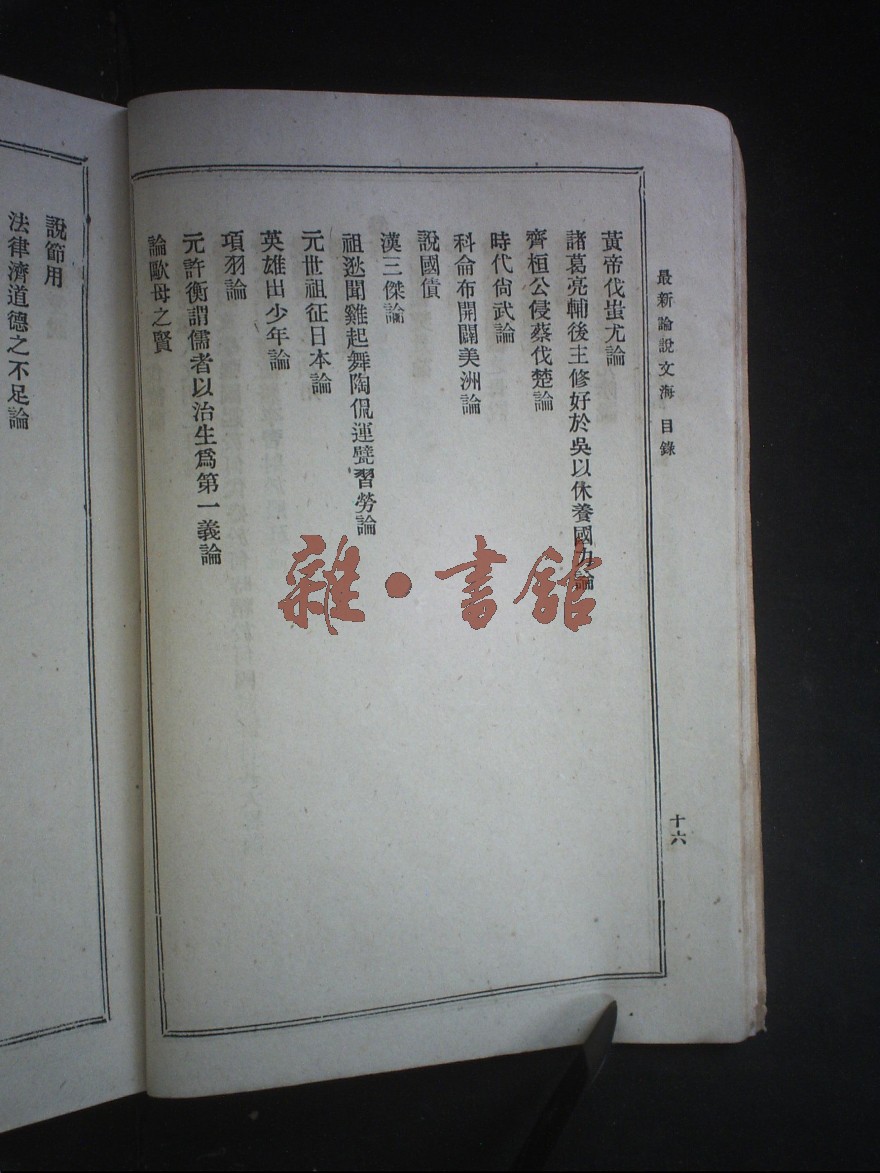 最新論說文海 目錄
十六
黃帝伐蚩尤論
諸葛亮輔後主修好於吳以休養國力論
齊桓公侵蔡伐楚論
時代尙武論
科侖布開闢美洲論
說國債
漢三傑論
祖逖聞雞起舞陶侃運甓習勞論
元世祖征日本論
英雄出少年論
項羽論
元許衡謂儒者以治生爲第一義論
論歐母之賢
說節用
法律濟道德之不足論
雜·書館